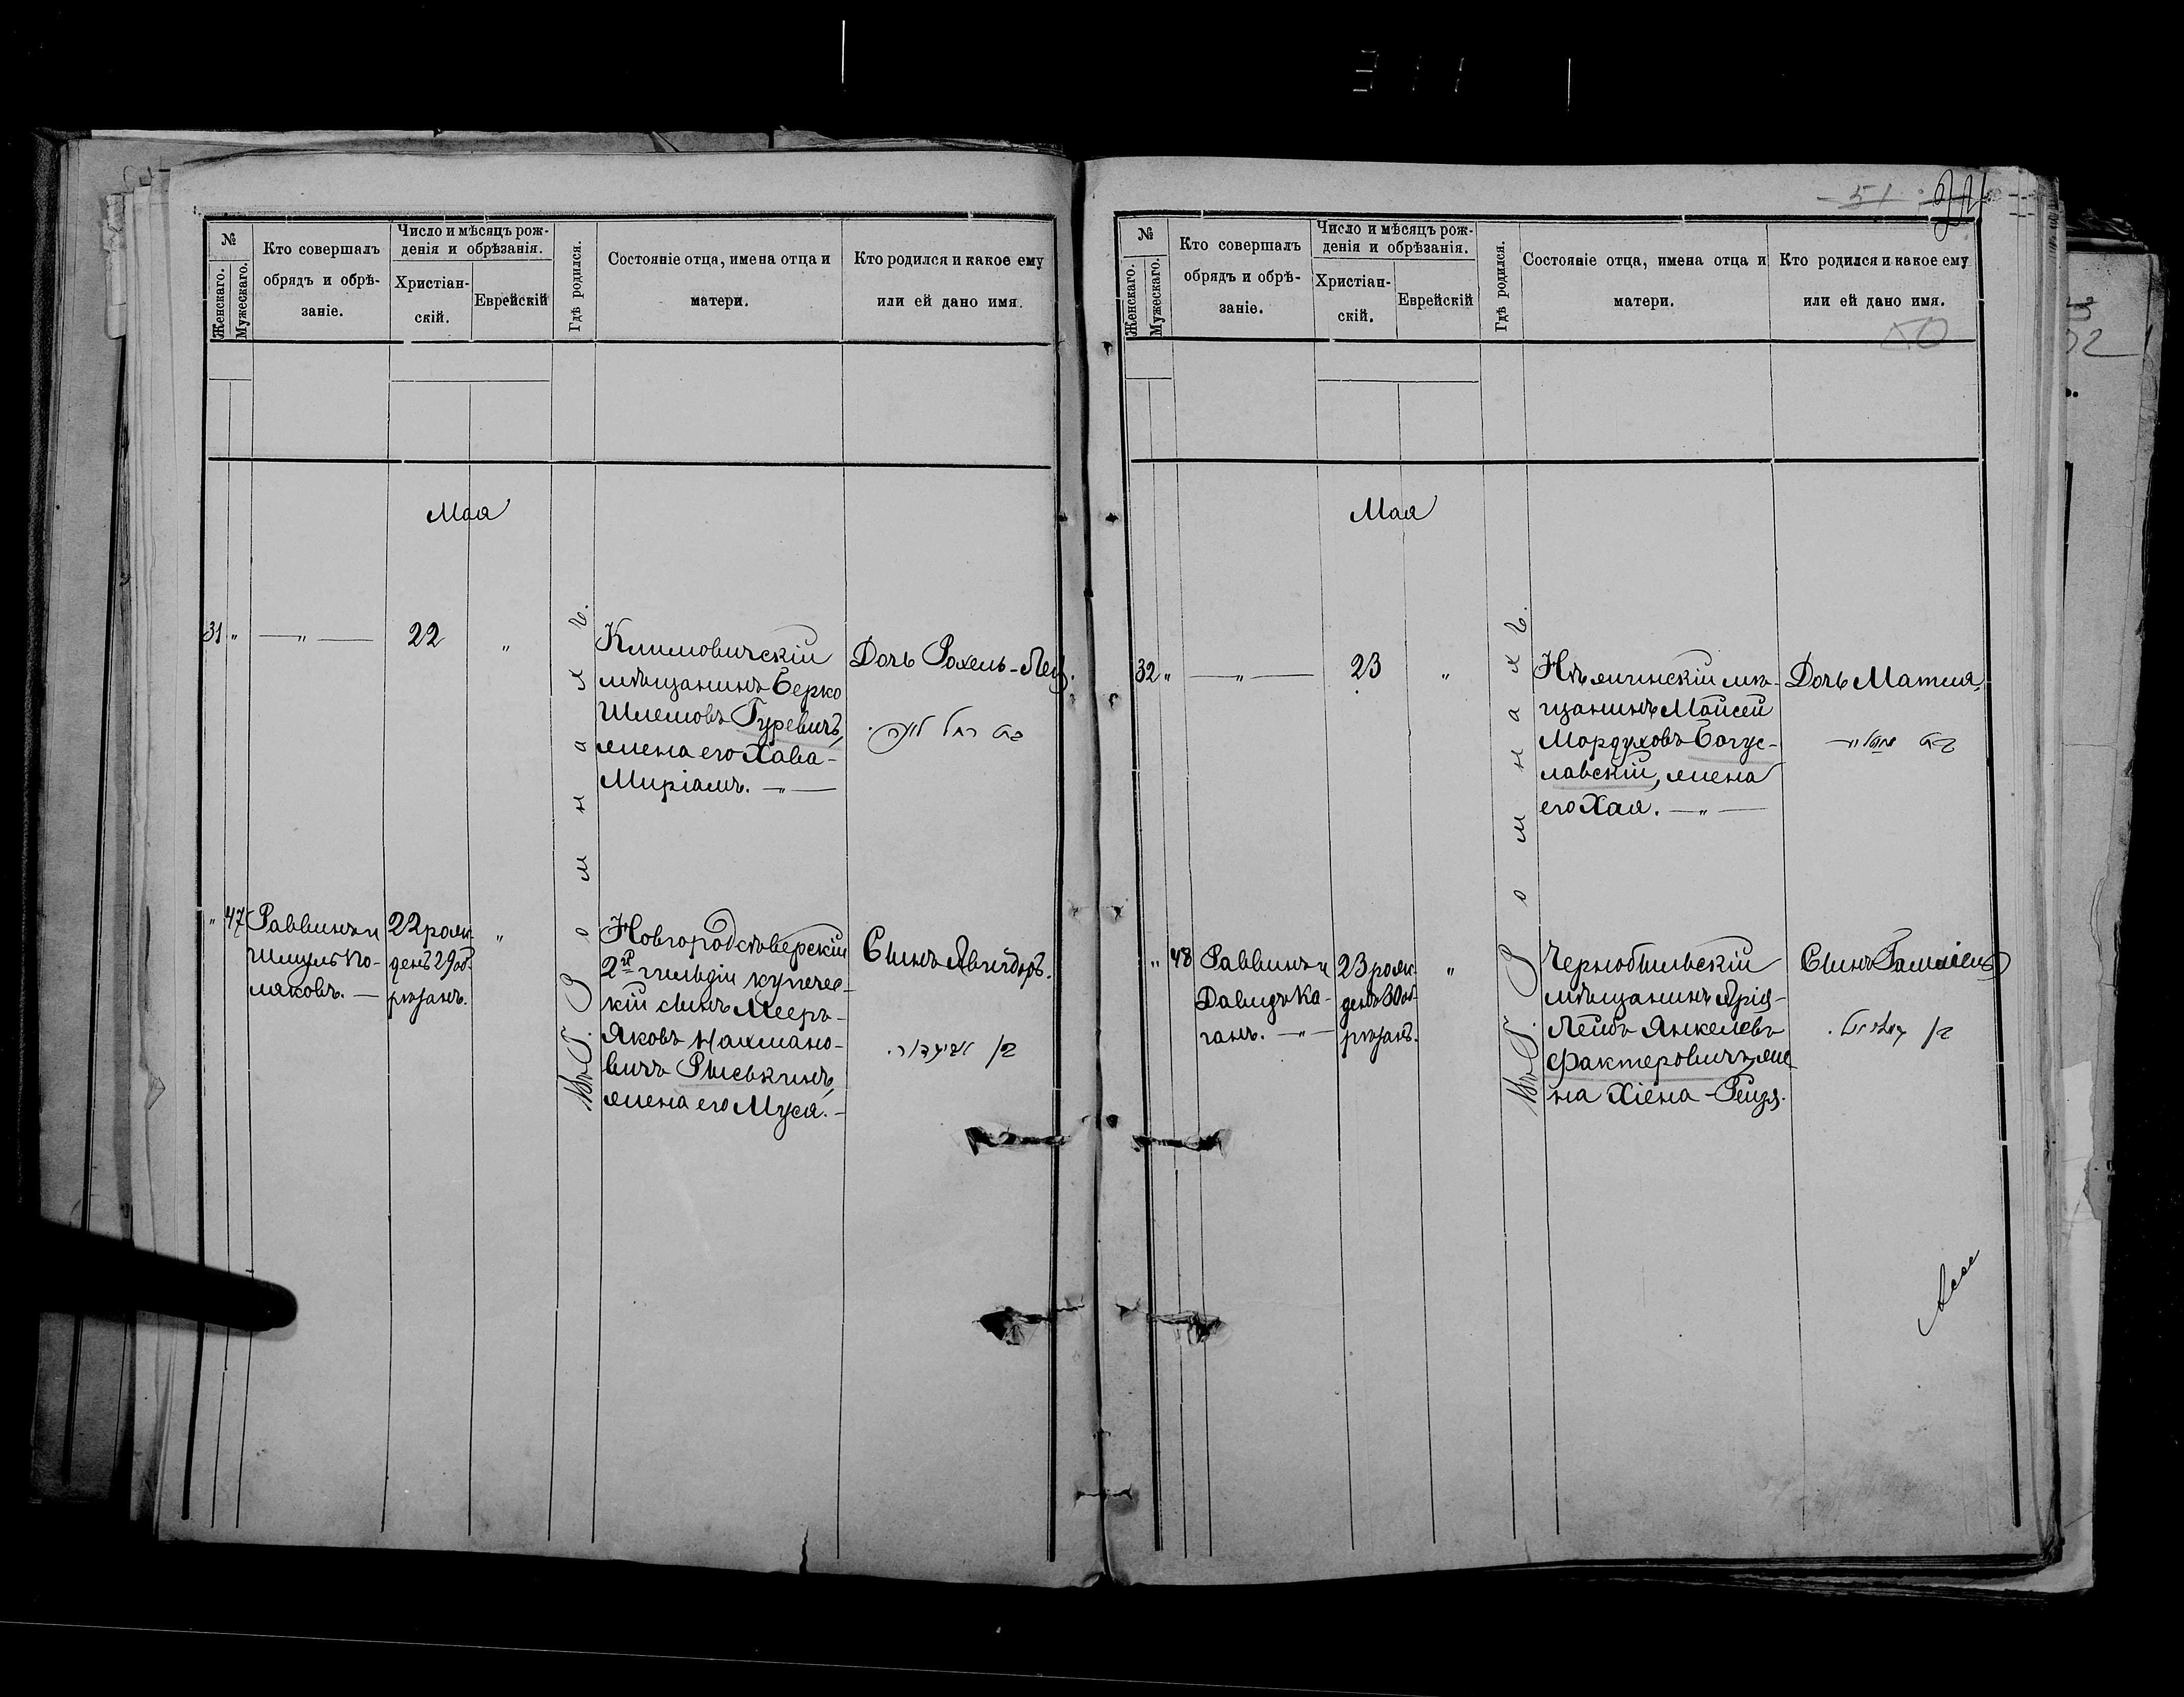 311
№
Женскаго.
Мужескаго.
Кто совершалъ
обрядъ и обрѣ-
заніе.
Число и мѣсяцъ рож-
денія и обрѣзанія.
Христіан-
скій.
Еврейскій
Гдѣ родился.
Состояніе отца, имена отца и
матери.
Кто родился и какое ему
или ей дано имя.
Мая
31 „
— „ —
22
„
Въ Г. Ромнахъ.
Климовичскій
мѣщанинъ Берко
Шлемовъ Гуревичъ,
жена его Хава-
Миріамъ. — „ —
Дочь Рохель-Лея.
בת רחל לאה.
„ 47
Раввинъ и
Шмуль По-
ляковъ. —
22 рож-
денъ 29 об-
рѣзанъ.
„
Новгородсѣверскій
2й гильдіи купечес-
кій сынъ Мееръ-
Яковъ Нахмано-
вичъ Рыськинъ,
жена его Муся. -
Сынъ Авигдоръ.
בן אביגדור.
51
№
Женскаго.
Мужескаго.
Кто совершалъ
обрядъ и обрѣ-
заніе.
Число и мѣсяцъ рож-
денія и обрѣзанія.
Христіан-
скій.
Еврейскій
Гдѣ родился.
Состояніе отца, имена отца и
матери.
Кто родился и какое ему
или ей дано имя.
50
Мая
32 „
— „ —
23
„
Въ Г. Ромнахъ.
Нѣжинскій мѣ-
щанинъ Мойсей
Мордуховъ Богус-
лавскій, жена
его Хая. — „ —
Дочь Матля.
בת
„ 48
Раввинъ и
Давидъ Ка-
ганъ. — „ —
23 рож-
денъ 30 об-
рѣзанъ.
„
Чернобыльскій
мѣщанинъ Арія-
Лейбъ Янкелевъ
Фактеровичъ, же-
на Хіена-Рейзя.
Сынъ Гамшіель
בן